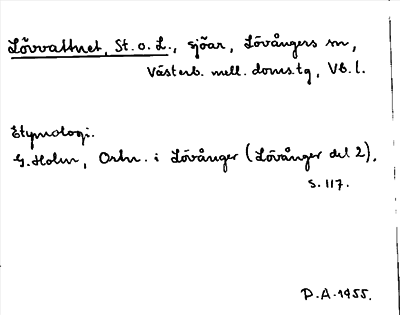 Lövvattnet, St. o. L., sjöar, Lövångers sn,
Västerb. mell. doms.tg, Vb. l.
Etymologi.
G. Holm, Ortn. i Lövånger (Lövånger del 2).
s. 117.
P.A. 1955.